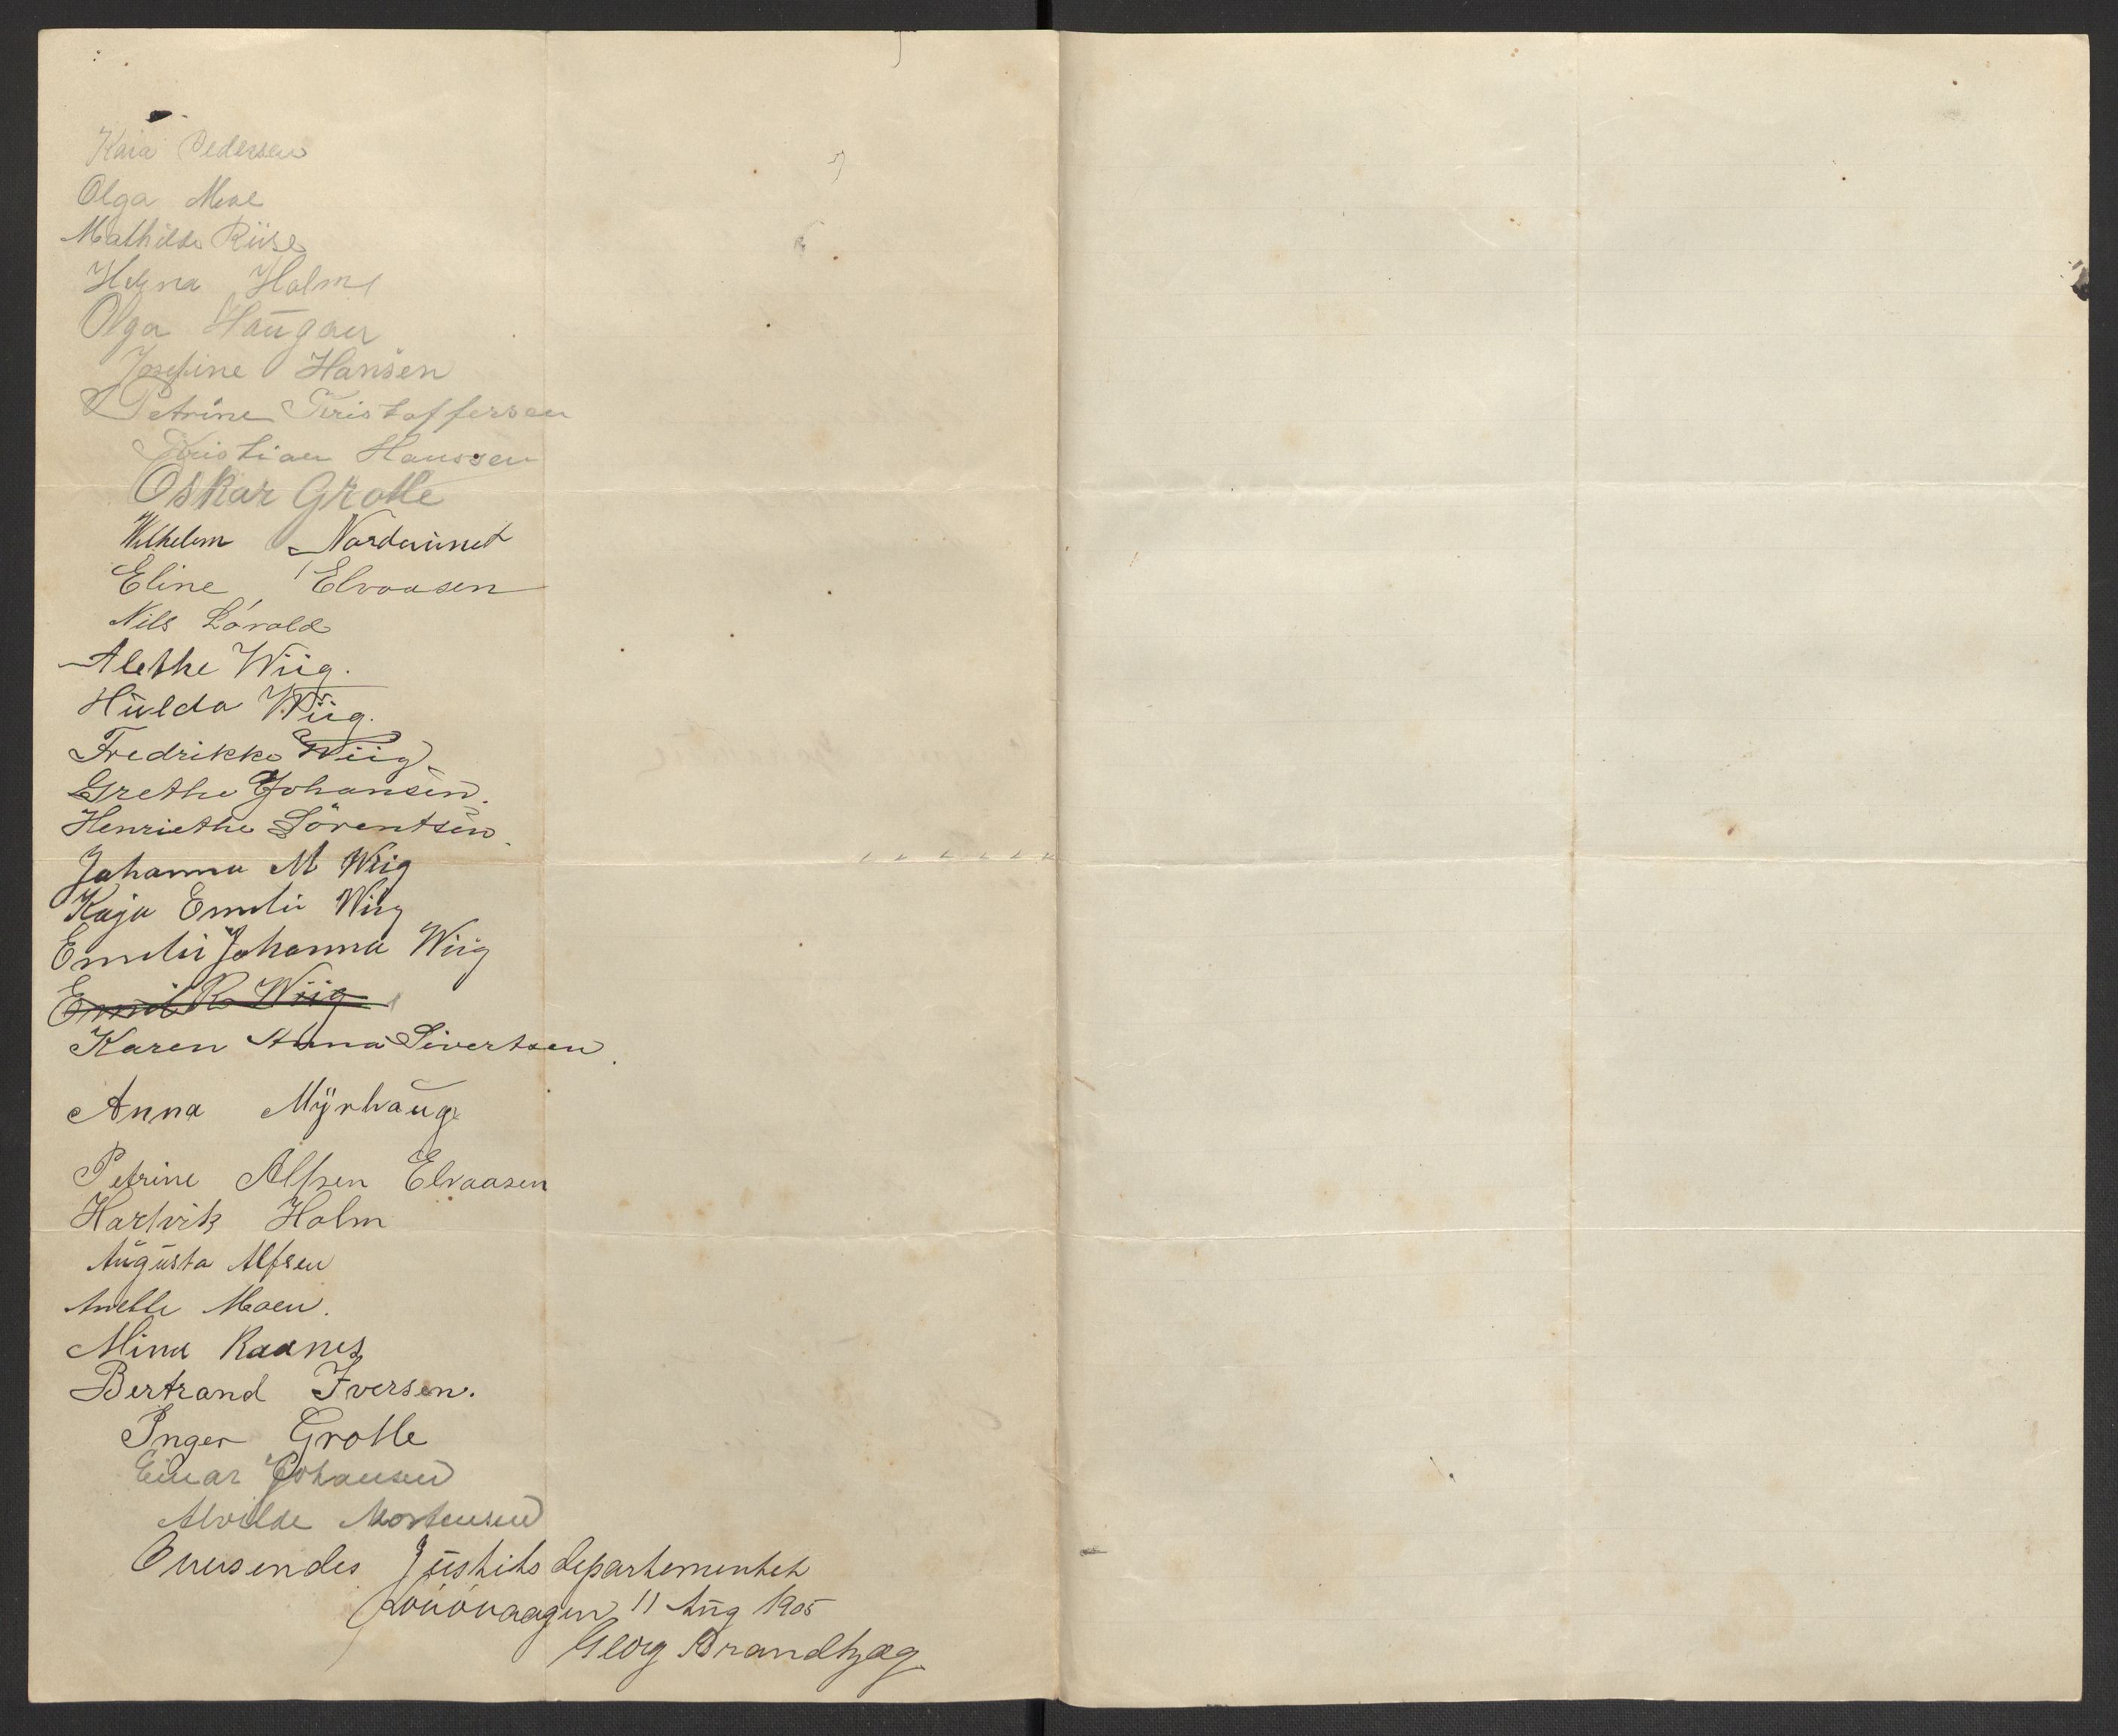 Kaia Pedersen
Olga Moe
Mathilde Riise
Helma Holm
Olga Haugan
Josefine Hansen
Petrine Kristoffersen
Kristian Hanssen
Oskar Grotle
Wilhelm Nordaunet
Eline Elvaasen
Nils Lórold
Alethe Wiig.
Hulda Wiig.
Fredrikke Wiig
Grethe Johansen.
Henriethe Sörentsen.
Johanna M Wiig
Kaja Emilie Wiig
Emilie Johanna Wiig
Emil R Wiig
Karen Anna Sivertsen.
Anna Myrhaug
Petrine Alfsen Elvaasen
Hartvik Holm
Augusta Alfsen
Anette Moen.
Mina Raanes
Bertrand Iversen.
Inger Grotle
Einar Johansen
Alvilde Mortensen
Justitsdepartementet
11 Aug 1905
Georg Brandtzæg